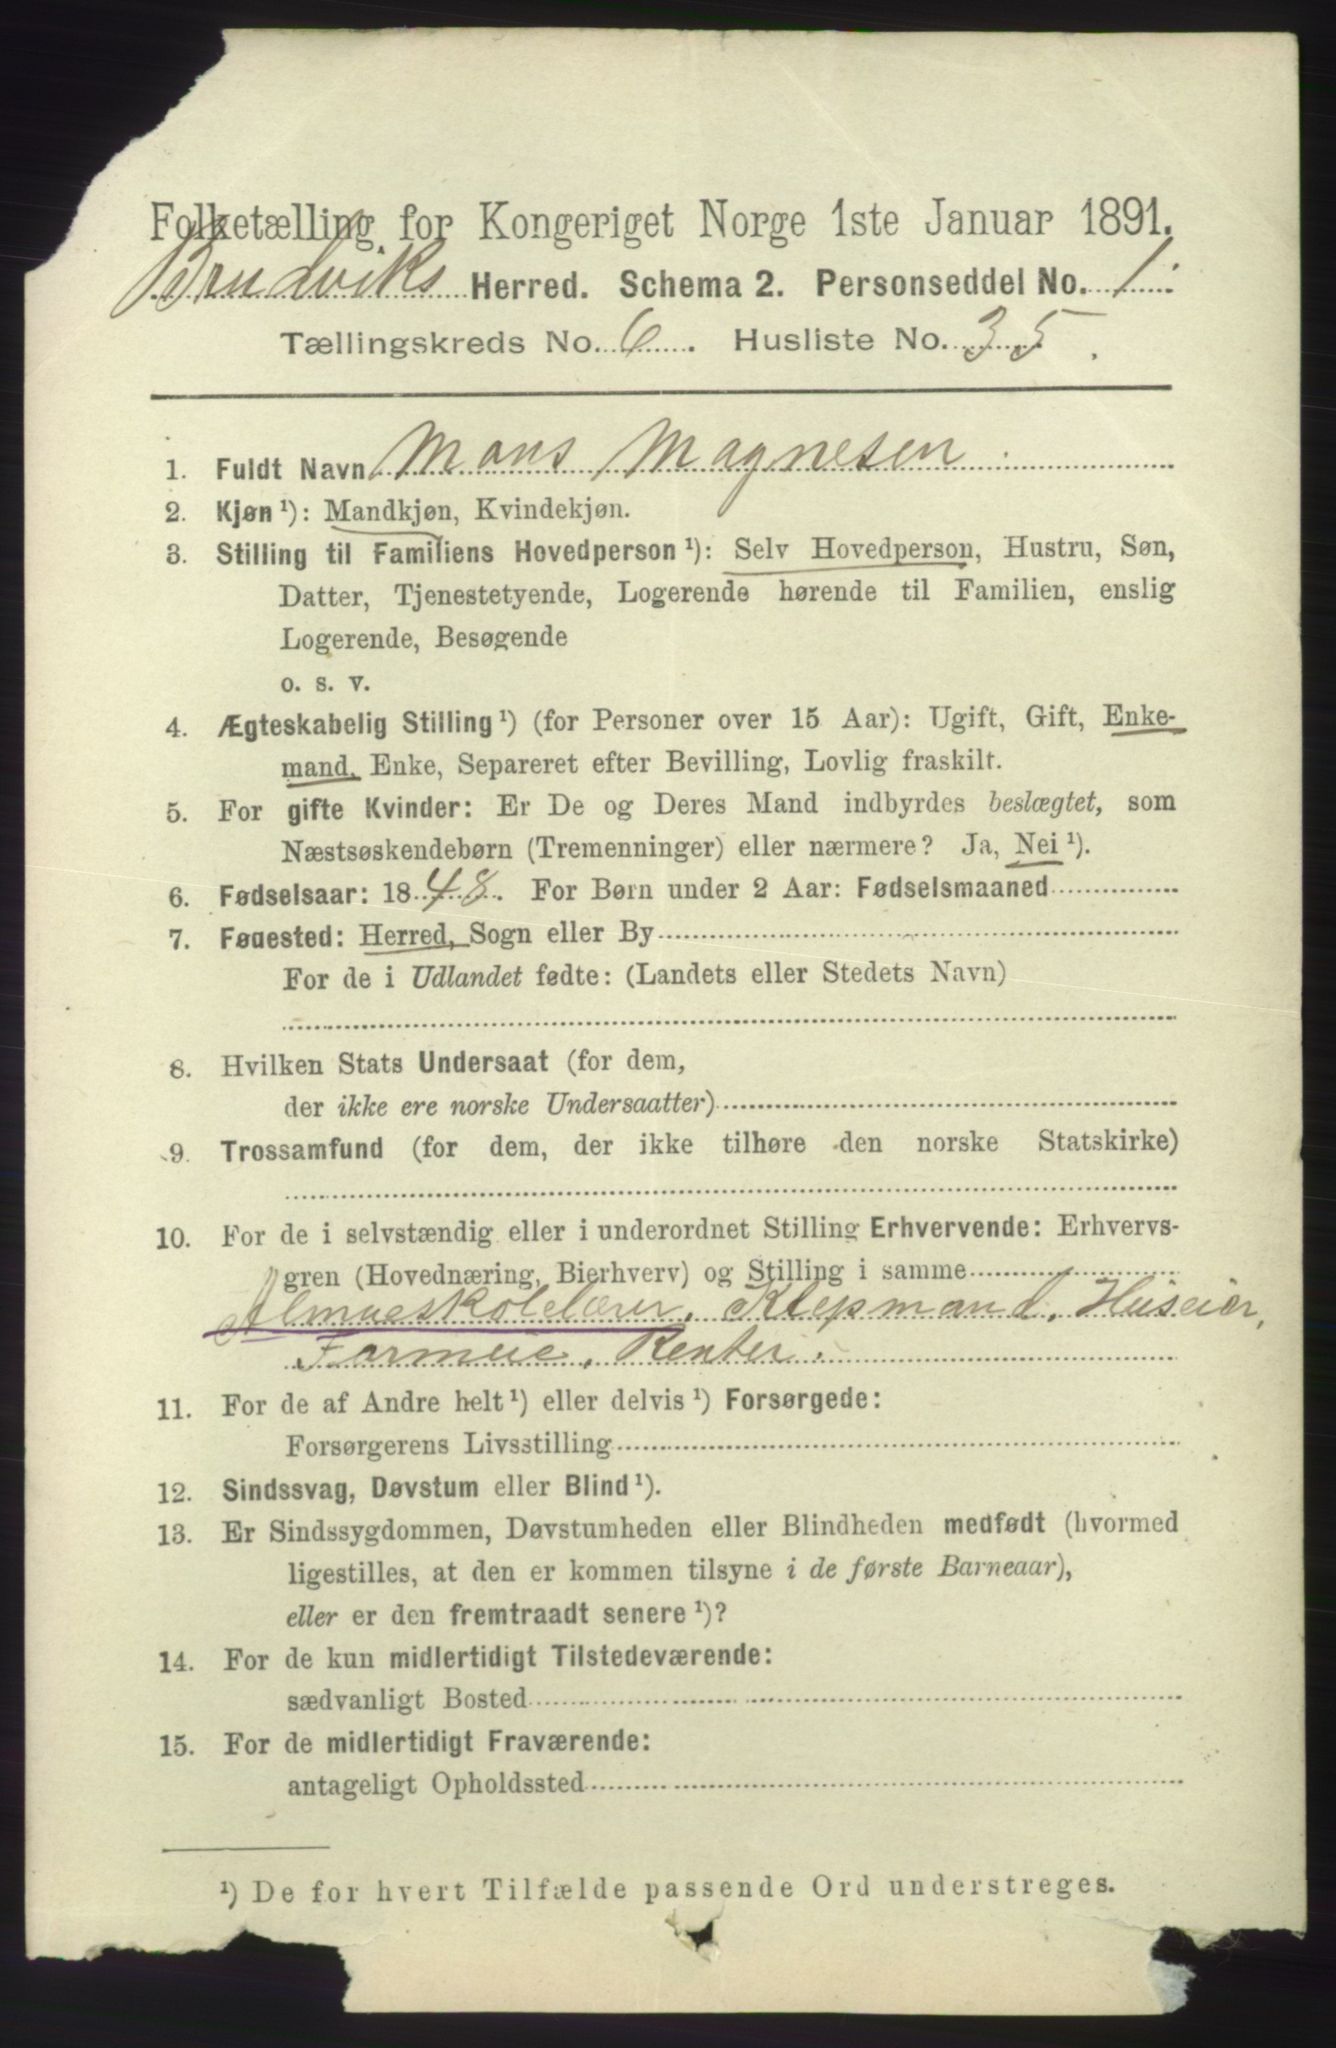 Folketælling for Kongeriget Norge 1ste Januar 1891.
Brudviks Herred. Schema 2. Personseddel No. 1.
Tællingskreds No. 6. Husliste No. 35.
1. Fuldt Navn Mons Magnesen
2. Kjøn ¹): Mandkjøn, Kvindekjøn.
3. Stilling til Familiens Hovedperson ¹): Selv Hovedperson, Hustru, Søn,
Datter, Tjenestetyende, Logerende hørende til Familien, enslig
Logerende, Besøgende
o. s. v.
4. Ægteskabelig Stilling ¹) (for Personer over 15 Aar): Ugift, Gift, Enke-
mand, Enke, Separeret efter Bevilling, Lovlig fraskilt.
5. For gifte Kvinder: Er De og Deres Mand indbyrdes beslægtet, som
Næstsøskendebørn (Tremenninger) eller nærmere? Ja, Nei ¹).
6. Fødselsaar: 1848. For Børn under 2 Aar: Fødselsmaaned
7. Føuested: Herred, Sogn eller By
For de i Udlandet fødte: (Landets eller Stedets Navn)
8. Hvilken Stats Undersaat (for dem,
der ikke ere norske Undersaatter)
9. Trossamfund (for dem, der ikke tilhøre den norske Statskirke)
10. For de i selvstændig eller i underordnet Stilling Erhvervende: Erhvervs-
gren (Hovednæring, Bierhverv) og Stilling i samme
Almueskolelærer, Klepmand, Huseier,
Formue, Renter.
11. For de af Andre helt ¹) eller delvis ¹) Forsørgede:
Forsørgerens Livsstilling
12. Sindssvag, Døvstum eller Blind ¹).
13. Er Sindssygdommen, Døvstumheden eller Blindheden medfødt (hvormed
ligestilles, at den er kommen tilsyne i de første Barneaar),
eller er den fremtraadt senere ¹)?
14. For de kun midlertidigt Tilstedeværende:
sædvanligt Bosted
15. For de midlertidigt Fraværende:
antageligt Opholdssted
¹) De for hvert Tilfælde passende Ord understreges.